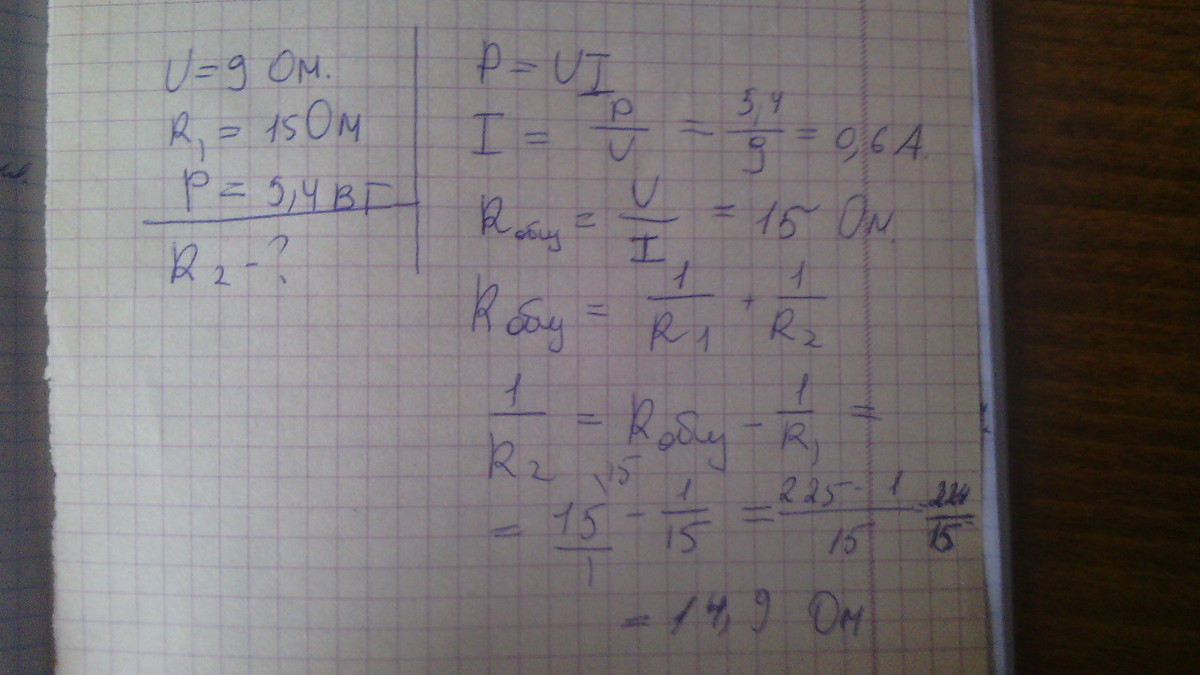 U = 9 Ом.
R₁ = 15 Ом
P = 5,4 вт
R₂ - ?
P = UI
I = P/U = 5,4/9 = 0,6 А.
Rобщ = U/I = 15 Ом.
Rобщ = 1/R₁ + 1/R₂
1/R₂ = Rобщ - 1/R₁ =
= 15/1 \15 - 1/15 = 225 - 1/15 = 224/15
= 14,9 Ом